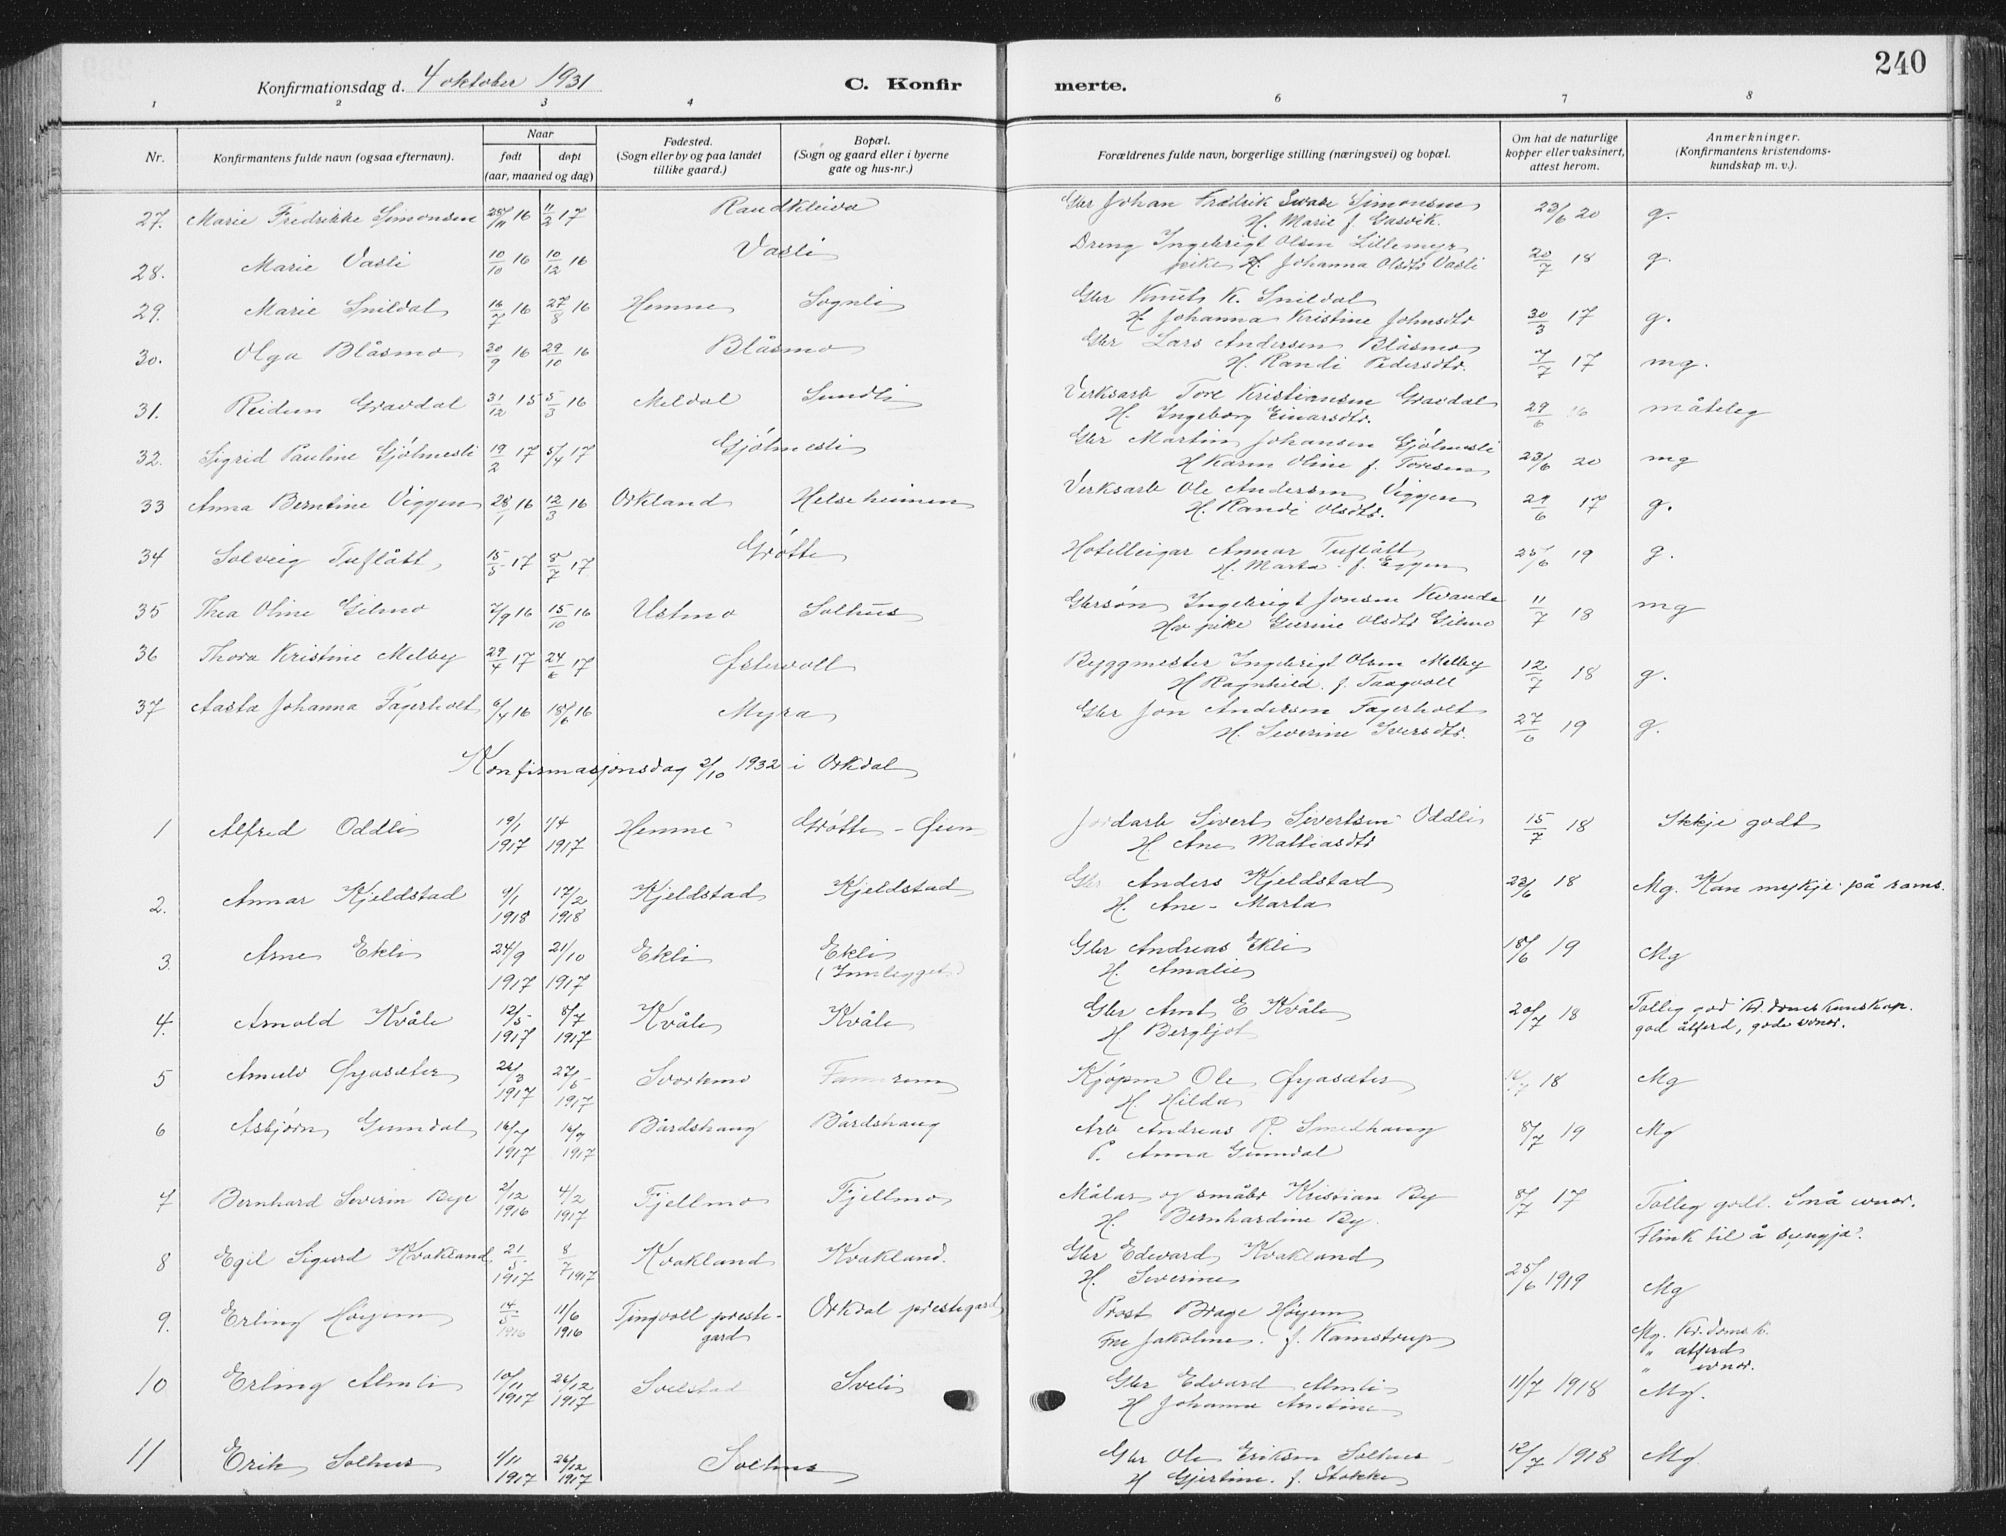 240
Konfirmationsdag d. 4 oktober 1931 C. Konfirmerte.
1 2 3 4 6 7 8
Nr. Konfirmantens fulde navn (ogsaa efternavn). Naar født døpt (aar, maaned og dag) Fødested. (Sogn eller by og paa landet tillike gaard.) Bopæl. (Sogn og gaard eller i byerne gate og hus-nr.) Forældrenes fulde navn, borgerlige stilling (næringsvei) og bopæl. Om hat de naturlige kopper eller vaksinert, attest herom. Anmerkninger. (Konfirmantens kristendomskundskap m. v.).
27. Marie Fredrikke Simonsen 28/11 16 11/2 17 Raudkleiva Gbr Johan Fredrik Simonsen 23/6 20 g.
H. Marie f. Gasvik.
28. Marie Vasli 10/10 16 10/12 16 Vasli Dreng Ingebrigt Olsen Lillemyr 20/7 18 g.
pike Johanna Olsdtr Vasli
29. Marie Snildal 16/7 16 27/8 16 Hemne Sognli Gbr Knut K. Snildal 30/3 17 g.
H. Johanna Kristine Johnsdtr
30. Olga Blåsmo 30/9 16 29/10 16 Blåsmo Gbr Lars Andersen Blåsmo 7/7 17 mg.
H. Randi Pedersdtr.
31. Reidun Gravdal 31/12 15 5/3 16 Meldal Sundli Verksarb Tore Kristiansen Gravdal 29/6 16 måteleg
H. Ingeborg Einarsdtr.
32. Sigrid Pauline Gjølmesli 19/2 17 5/4 17 Gjølmesli Gbr Martin Johansen Gjølmesli 23/6 20 mg
H Karen Oline f. Toresen
33 Anna Berntine Viggen 28/1 16 12/3 16 Orkland Helseheimen Verksarb Ole Andersen Viggen 29/6 17 g.
H. Randi Olsdtr.
34 Solveig Tuflått 15/5 17 8/7 17 Grøtte Hotelleigar Annar Tuflått 25/6 19 g.
H. Marta f. Eggen
35 Thea Oline Gilmo 7/9 16 15/10 16 Ustmo Solhus Gbrsøn Ingebrigt Jonsen Kvande 11/7 18 mg
Hv pike Gurine Olsdtr Gilmo
36 Thora Kristine Melby 29/4 17 24/6 17 Østervoll Byggmester Ingebrigt Olsen Melby 12/7 18 g.
H Ragnhild f. Taagvoll
37 Aasta Johanna Fagerholt 6/4 16 18/6 16 Myra Gbr Jon Andersen Fagerholt 27/6 19 g.
H. Severine Iversdtr.
Konfirmasjonsdag 2/10 1932 i Orkdal
1 Alfred Oddli 19/1 1917 1/4 1917 Hemne Grøtte - Øien Jordarb Sivert Sivertsen Oddli 15/7 18 Ikkje godt
H. Ane Mattiasdtr
2. Annar Kjeldstad 9/1 1918 17/2 1918 Kjeldstad Kjeldstad Gbr Anders Kjeldstad 23/6 18 Mg. Kan mykje på rams.
H. Ane-Marta
3. Arne Ekli 24/9 1917 21/10 1917 Ekli Ekli (Innlegget) Gbr Andreas Ekli 18/6 19 Mg
H. Amalie
4. Arnold Kvåle 12/5 1917 8/7 1917 Kvåle Kvåle Gbr Arnt E Kvåle 20/7 18 Tolleg god Kr.domskunskap.
H. Bergljot god åtferd, gode evner.
5 Amulv Øyasæter 26/3 1917 27/5 1917 Svorkmo Fannrem Kjøpm Ole Øyasæter 18 Mg
H Hilda
6 Asbjørn Gumdal 16/4 1917 16/9 1917 Bårdshaug Bårdshaug Arb Andreas R. Smedhaug 8/7 19 Mg
P. Anna Gumdal
7 Bernhard Severin Bye 2/12 1916 4/2 1917 Fjellmo Fjellmo Målar og småbr Kristian By 8/7 17 Tolleg godt. Små evner.
H. Bernhardine By. Flink til å syngja.
8 Egil Sigurd Kvakland 21/5 1917 8/7 1917 Kvakland Kvakland. Gbr Edvard Kvakland 25/6 1919 Mg
H. Severine
9. Erling Høyem 14/5 1916 11/6 1916 Tingvoll prestegard Orkdal prestegard Prost Brage Høyem Mg. Kr.domsk.
Fru Jakobine f. Kamstrup " åtferd
" evner.
10 Erling Almli 10/11 1917 26/12 1917 Svelstad Sveli Gbr Edvard Almli 11/7 1918 Mg.
H Johanna
11 Erik Solhus 4/11 1917 26/12 1917 Solhus Gbr Ole Eriksen Solhus 12/7 1918 Mg
H Gjertine f. Stokke